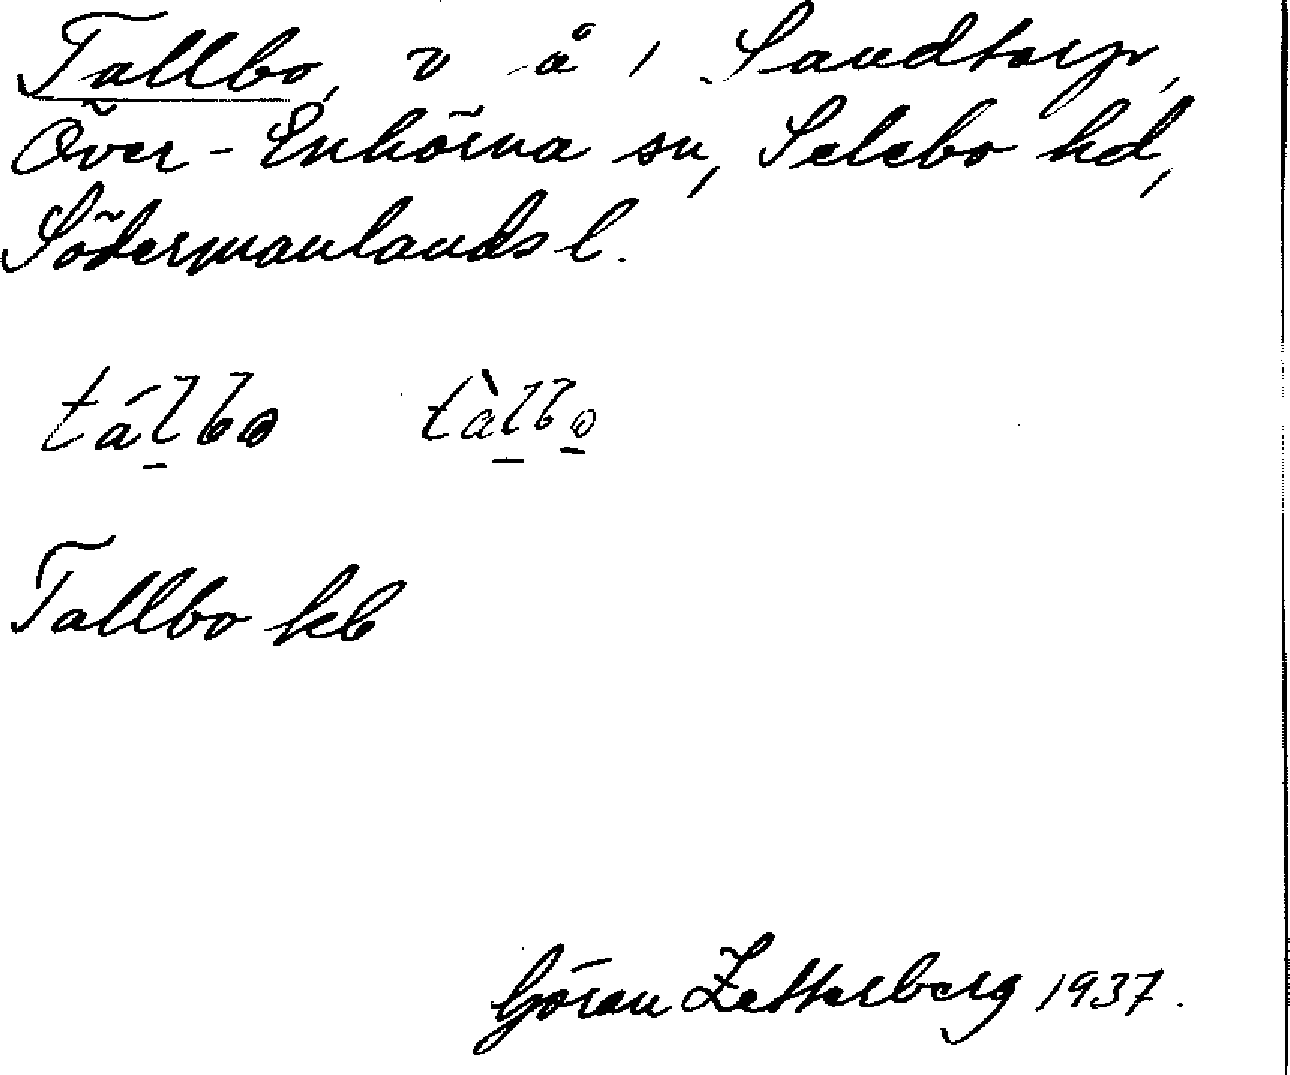 Tallbo, v å i Sandtorp,
Över-Enhörna sn, Selebo hd,
Södermanlands l.
tálbo tàlbo
Tallbo kb
Göran Zetterberg 1937.